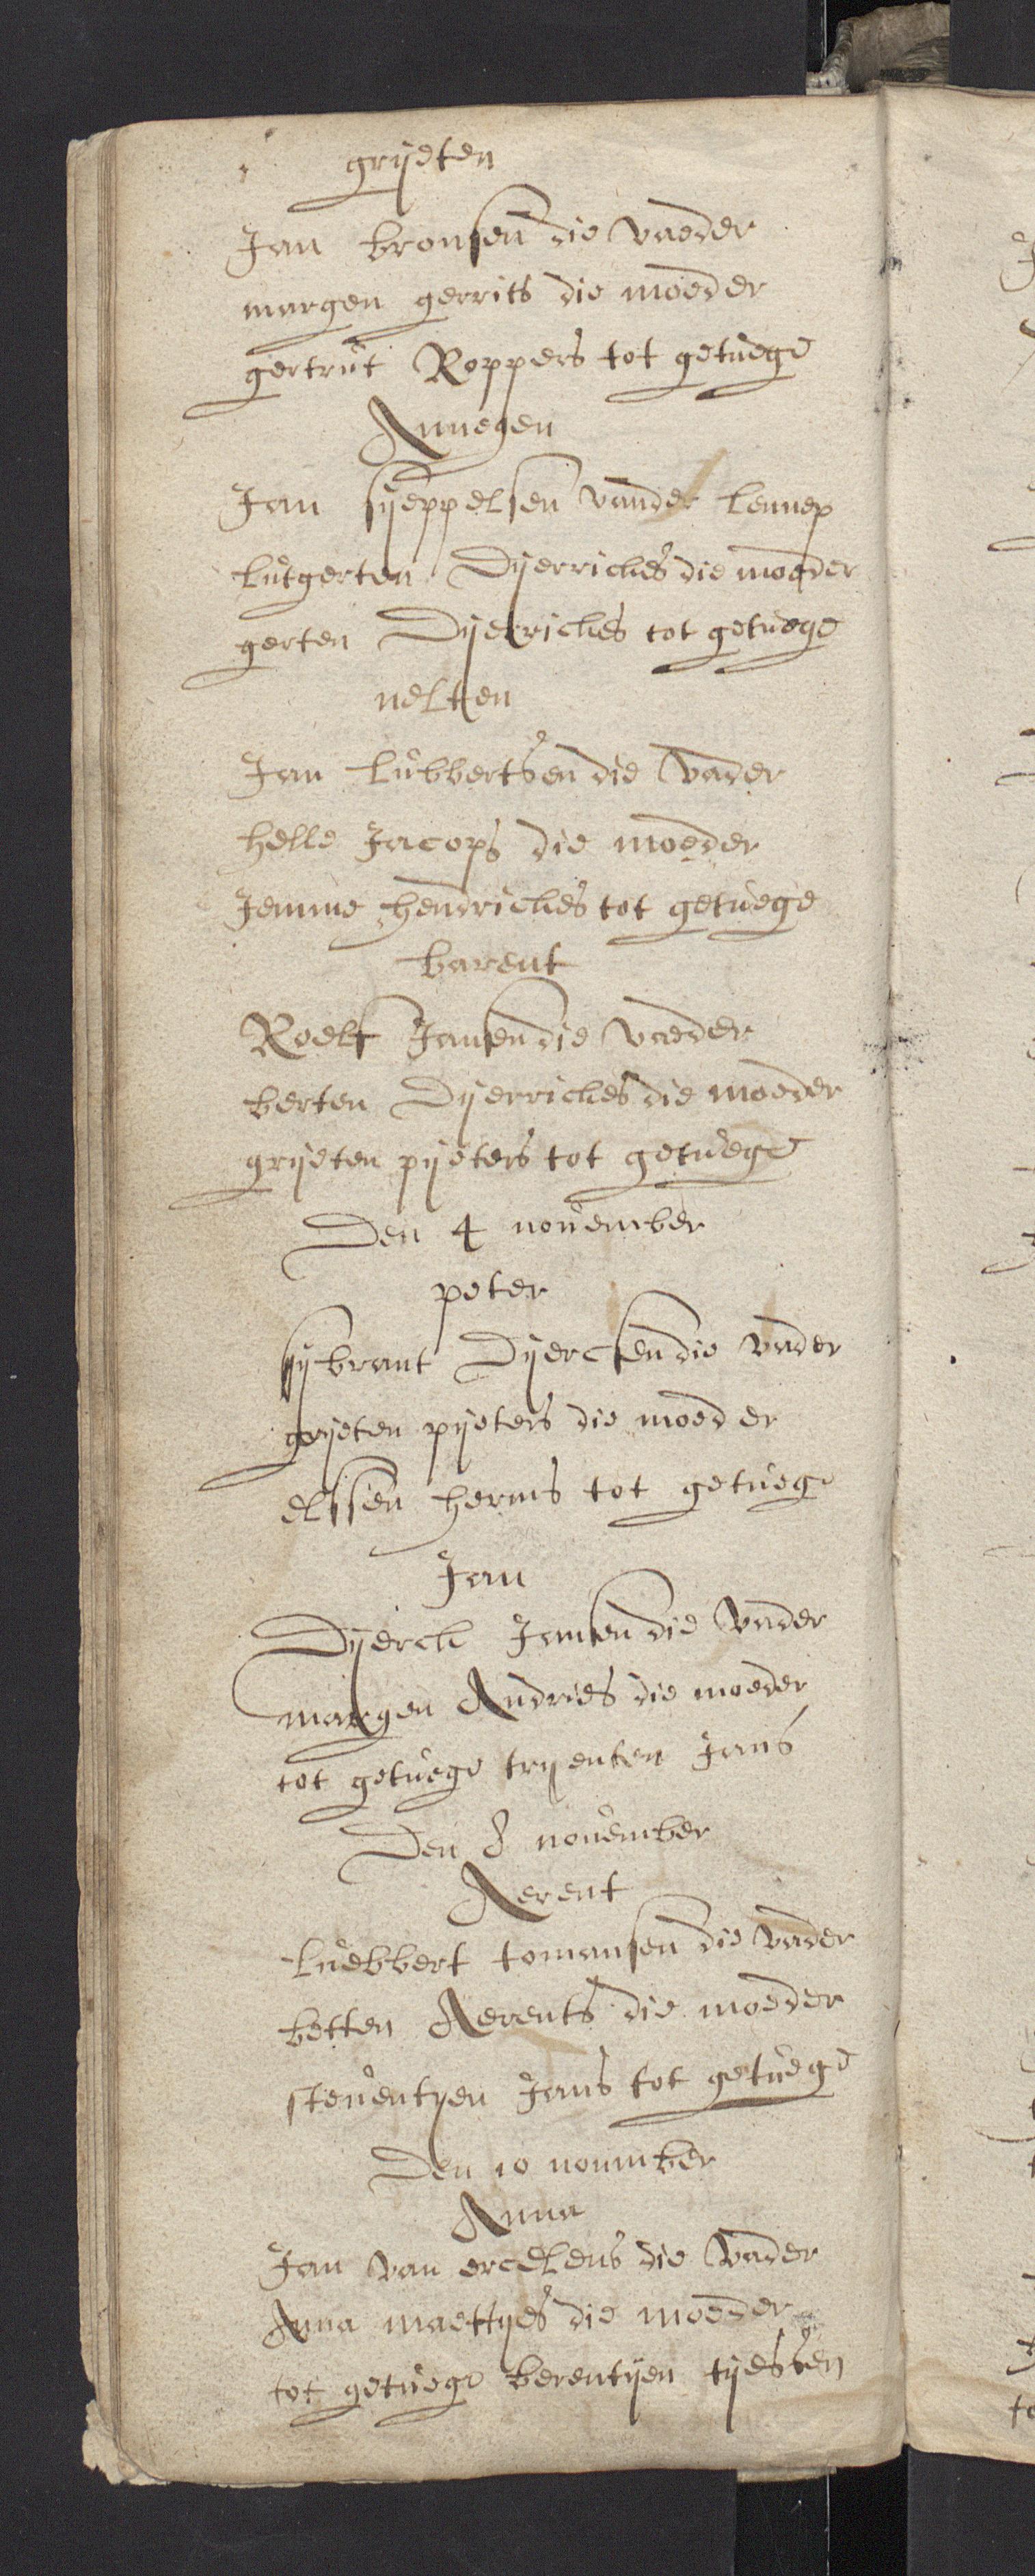 grijeten
Jan bronsen die vaeder
margen gerrits die moeder
gertrut Roppers tot getuege
Annegen
Jan sijeppelsen vander lennep
lutgerten Dijerriches die moeder
gerten Dijerriches tot getuege
nelken
Jan lubbertsen die vader
helle Jacops die moeder
Jemme hendriches tot getuege
barent
Roelf Jansen die vaeder
berten Dijerriches die moeder
grijeten pijeters tot getuege
Den 4 november
peter
sijbrant Dijercsen die vader
grijeten pijeters die moeder
elssen herms tot getuege
Jan
Dijerch Jansen die vader
margen Andries die moeder
tot getuege trijenten Jans
Den 8 november
Aerent
luebbert tomansen die vader
betten Aerents die moeder
steventyen Jans tot getuege
Den 10 novmber
Anna
Jan van ercelens die vader
Anna maettyes die moeder
tot getuege berentijen tijessen